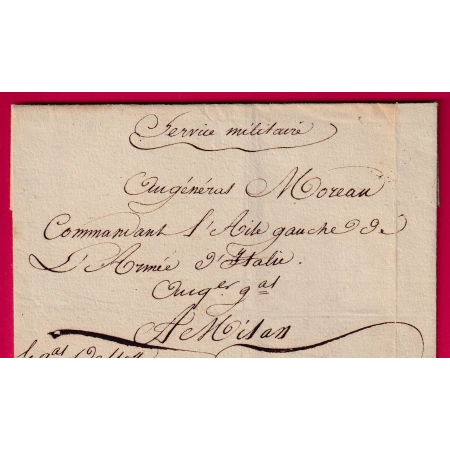 Service militaire
Au général Moreau
Commandant l'Aile gauche de
L'Armée d'Italie.
Au qer gal
A Milan